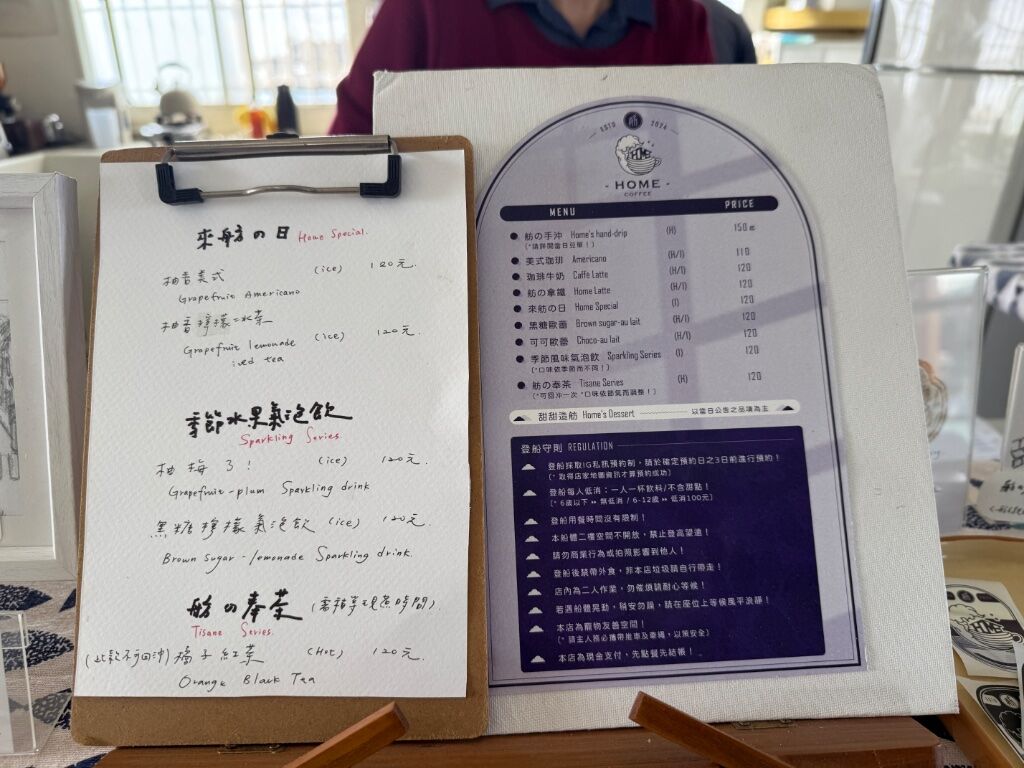 來舫の日 Home Special.
柚香美式 (ice) 120元.
Grapefruit Americano
柚香檸檬冰茶
Grapefruit lemonade (ice) 120元.
iced tea
季節水果氣泡飲
Sparkling Series.
柚梅了! (ice) 120元.
Grapefruit-plum Sparkling drink
黑糖檸檬氣泡飲 (ice) 120元.
Brown Sugar-lemonade Sparkling drink.
舫の奉茶 (需稍等現煮時間)
Tisane Series.
(此款不可回沖) 橘子紅茶 (Hot) 120元.
Orange Black Tea
ESTD 舫 2024
HOME
- HOME -
COFFEE
MENU PRICE
舫の手沖 Home's hand-drip (H) 150
(*請詳閱當日豆單!)
美式咖啡 Americano (H/I) 110
珈琲牛奶 Caffè Latte (H/I) 120
舫の拿鐵 Home Latte (H/I) 120
來舫の日 Home Special (I) 120
黑糖歐蕾 Brown sugar-au lait (H/I) 120
可可歐蕾 Choco-au lait (H/I) 120
季節風味氣泡飲 Sparkling Series (I) 120
(*口味依季節而不同!)
舫の奉茶 Tisane Series (H) 120
(*可回沖一次 *口味依節氣而調整!)
甜甜造舫 Home's Dessert 以當日公告之品項為主
登船守則 REGULATION
登船採取IG私訊預約制,請於確定預約日之3日前進行預約!
(*取得店家地圖資訊才算預約成功)
登船每人低消:一人一杯飲料/不含甜點!
(*6歲以下 ▸▸ 無低消 / 6-12歲 ▸▸ 低消100元)
登船用餐時間沒有限制!
本船體二樓空間不開放,禁止登高望遠!
請勿商業行為或拍照影響到他人!
登船後禁帶外食,非本店垃圾請自行帶走!
店內為二人作業,勿催煩請耐心等候!
若遇船體晃動,稍安勿躁,請在座位上等候風平浪靜!
本店為寵物友善空間!
(*請主人務必攜帶推車及牽繩,以策安全)
本店為現金支付,先點餐先結帳!